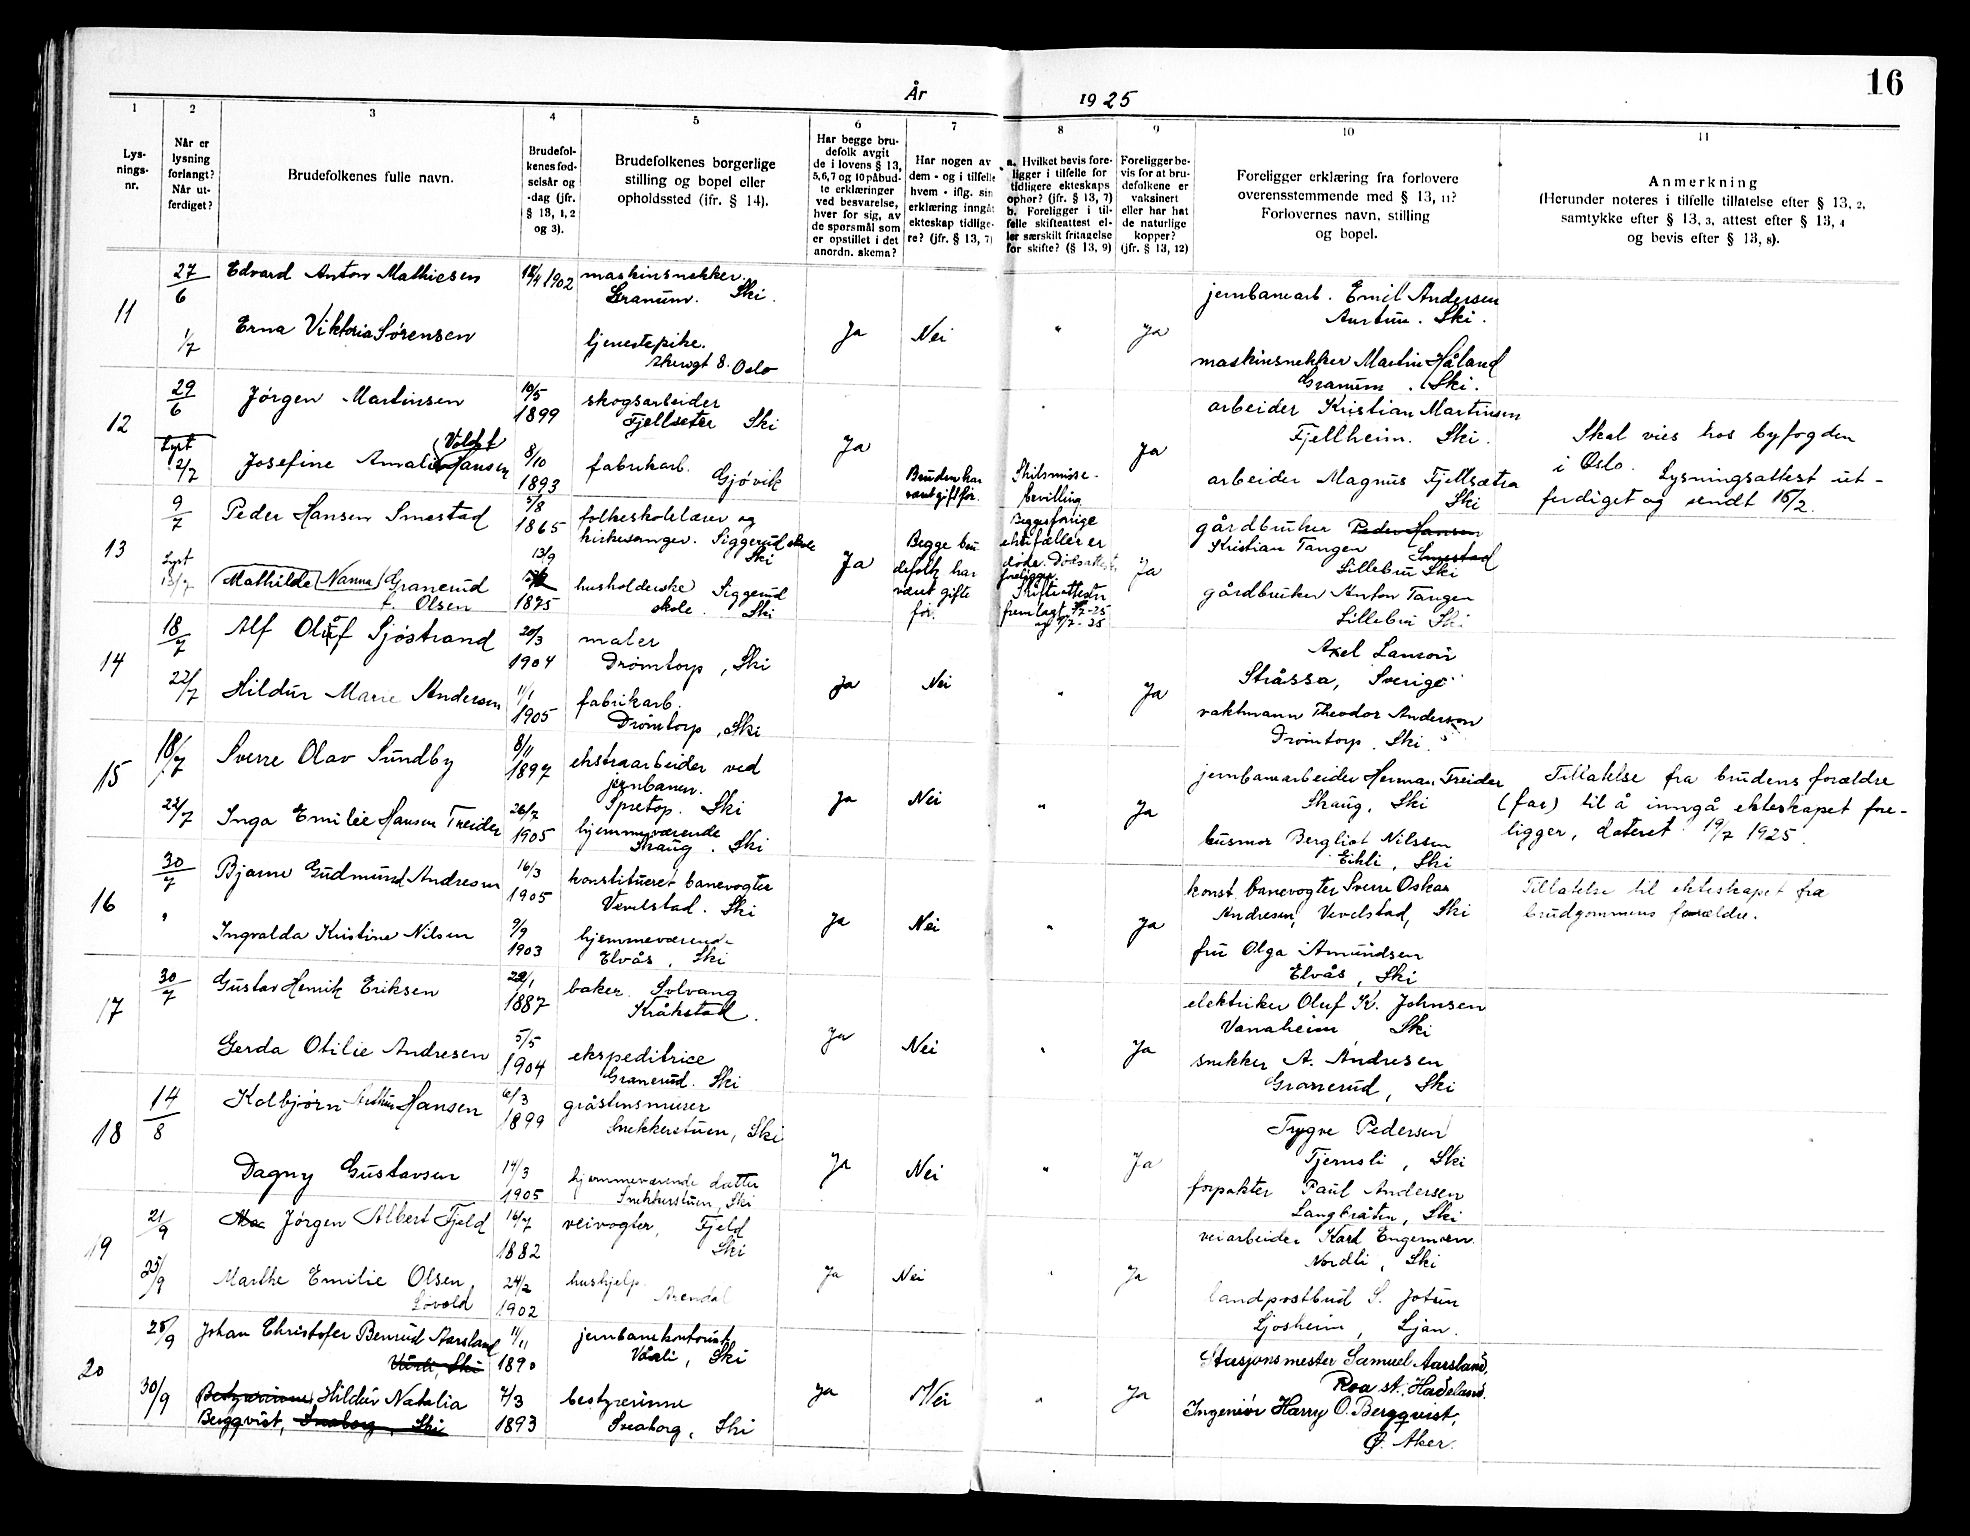 16
År 1925
1 2 3 4 5 6 7 8 9 10 11
Lys-
nings-
nr.
Når er
lysning
forlangt?
Når ut-
ferdiget?
Brudefolkenes fulle navn.
Brudefol-
kenes fød-
selsår og
-dag (jfr.
§ 13, 1, 2
og 3).
Brudefolkenes borgerlige
stilling og bopel eller
opholdssted (jfr. § 14).
Har begge bru-
defolk avgit
de i lovens § 13,
5, 6, 7 og 10 påbud-
te erklæringer
ved besvarelse,
hver for sig, av
de spørsmål som
er opstillet i det
anordn. skema?
Har nogen av
dem - og i tilfelle
hvem - iflg. sin
erklæring inngåt
ekteskap tidlige-
re? (jfr. § 13, 7)
a. Hvilket bevis fore-
ligger i tilfelle for
tidligere ekteskaps
ophør? (jfr. § 13, 7)
b. Foreligger i til-
felle skifteattest el-
ler særskilt fritagelse
for skifte? (§ 13, 9)
Foreligger be-
vis for at bru-
defolkene er
vaksinert
eller har hat
de naturlige
kopper?
(jfr. § 13, 12)
Foreligger erklæring fra forlovere
overensstemmende med § 13, 11?
Forlovernes navn, stilling
og bopel.
Anmerkning
(Herunder noteres i tilfelle tillatelse efter § 13, 2,
samtykke efter § 13, 3, attest efter § 13, 4
og bevis efter § 13, 8).
11
27/6
Edvard Anton Mathiesen
1902
maskinsnekker.
Granum. Ski.
jernbanearb. Emil Andersen
Ski.
1/7
Erna Viktoria Sørensen
tjenestepike.
8. Oslo
Ja Nei " Ja
maskinsnekker Martin Håland
Granum. Ski.
12
29/6
Jørgen Martinsen
10/5
1899
skogsarbeider
Fjellseter Ski
arbeider Kristian Martinsen
Fjellheim. Ski.
Lyst
2/7
Josefine Amalie Hansen
8/10
1893
fabrikarb.
Gjøvik
Ja
Bruden har
vært gift før.
Skilsmisse-
bevilling
Ja
arbeider Magnus Fjellsætra
Ski
Skal vies hos byfogden
i Oslo. Lysningsattest ut-
ferdiget og sendt 16/2.
13
9/7
Peder Hansen Smestad
5/8
1865
folkeskolelærer og
kirkesanger. Siggerud skole
Ski
gårdbruker Peder Hansen
Kristian Tangen Smestad
Lillebru Ski
Lyst
Mathilde (Nanna) Granerud
f. Olsen
13/9
1875
husholderske Siggerud
skole. Ski
Ja
Begge bru
defolk har
vært gifte
før.
Begges forrige
ektefæller er
døde. Dødsattest
foreligger.
Skifteattester
fremlagt
Ja
gårdbruker Anton Tangen
Lillebru Ski
14
18/7
Alf Oluf Sjöstrand
20/3
1904
maler
Drømtorp, Ski
Axel
Stråssa, Sverige
22/7
Hildur Marie Andersen
1/1
1905
fabrikarb.
Drømtorp, Ski
Ja Nei " Ja
vaktmann Theodor Anderson
Drømtorp. Ski.
15
18/7
Sverre Olav Sundby
8/11
1897
ekstraarbeider ved
jernbanen.
Spretop. Ski
jernbanearbeider Herman Treider
Skaug, Ski
22/7
Inga Emilie Hansen Treider
26/7
1905
hjemmeværende
Skaug. Ski
Ja Nei " Ja
husmor Bergliot Nilssen
Eikli, Ski
Tillatelse fra brudens forældre
(far) til å inngå ekteskapet fore-
ligger, datert 19/7 1925.
16
30/7
Bjarne Gudmund Andresen
16/3
1905
konstitueret banevogter
Vevelstad. Ski
konst. banevogter Sverre Oskar
Andresen, Vevelstad, Ski
"
Ingvalda Kristine Nilsen
9/9
1903
hjemmeværende
Elvås, Ski
Ja Nei " Ja
fru Olga Amundsen
Elvås, Ski
Tillatelse til ekteskapet fra
brudgommens forældre.
17
30/7
Gustav Henrik Eriksen
1887
baker Solvang
Kråkstad.
elektriker Oluf K. Johnsen
Vanaheim Ski
Gerda Otilie Andresen
5/5
1904
ekspeditrice
Granerud. Ski
Ja Nei " Ja
snekker A. Andresen
Granerud, Ski
18
14/8
Kolbjørn Arthur Hansen
6/3
1899
gråstensmurer
Snekkerstuen, Ski
Trygve Pedersen
Tjernsli, Ski
Dagny Gustavsen
14/3
1905
hjemmeværende datter
Snekkerstuen, Ski
Ja Nei " Ja
forpakter Paul Andersen
Langbråten, Ski
19
21/9
Jørgen Albert Fjeld
16/7
1882
veivogter, Fjeld
Ski
veiarbeider Karl Engemoen.
Nordli, Ski
25/9
Marthe Emilie Olsen
Løvold
24/2
1902
hushjelp.
Arendal
Ja Nei " Ja
landpostbud S. Jotun
Ljosheim, Ljan.
20
25/9
Johan Christofer Benrud Aarsland
Vårli, Ski
11/11
1890
jernbanekontorist
Vårli, Ski
Stasjonsmester Samuel Aarsland,
Roa st. Hadeland.
30/9
Bestyrerinne Hildur Natalia
Bergqvist, Sveaborg, Ski
7/3
1893
bestyrerinne
Sveaborg, Ski
Ja Nei " Ja
Ingeniør Harry O. Bergqvist,
Ø. Aker.